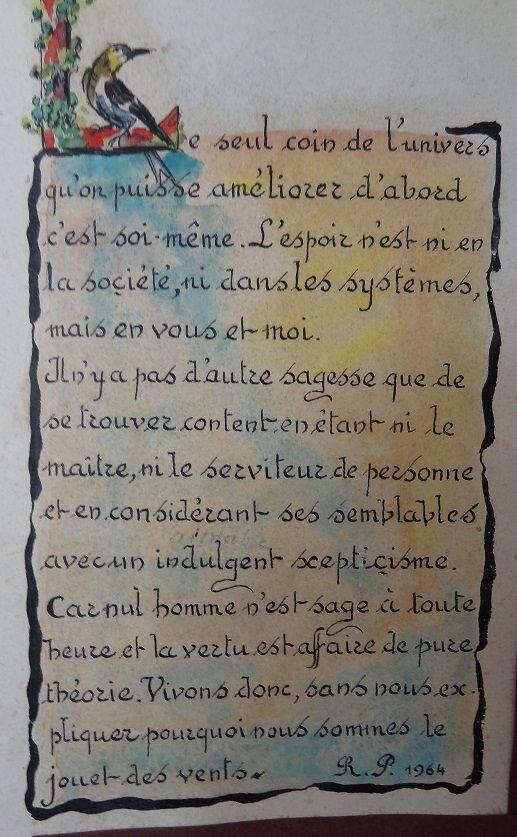 Le seul coin de l'univers
qu'on puisse améliorer d'abord
c'est soi-même. L'espoir n'est ni en
la soçiété, ni dans les systèmes,
mais en vous et moi.
Il n'y a pas d'autre sagesse que de
se trouver content en étant ni le
maître, ni le serviteur de personne
et en considérant ses semblables
avec un indulgent scepticisme.
Car nul homme n'est sage à toute
heure et la vertu est affaire de pure
théorie. Vivons donc, sans nous ex-
pliquer pourquoi nous sommes le
jouet des vents.
R. P. 1964